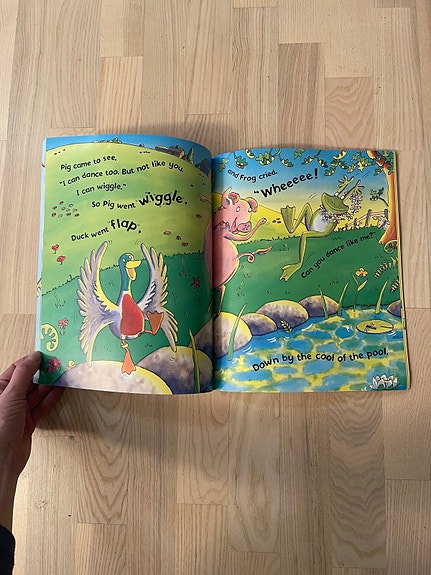 Pig came to see,
"I can dance too. But not like you.
I can wiggle."
So Pig went wiggle,
Duck went flap,
and Frog cried,
"Wheeeee!
Can you dance like me?"
Down by the cool of the pool.